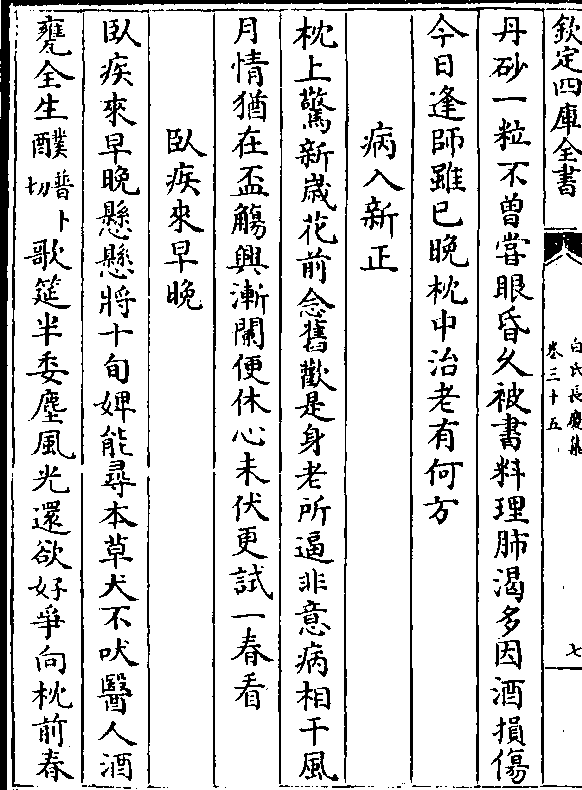 欽定四庫全書
白氏長慶集
卷三十五
七
丹砂一粒不曾嘗眼昏久被書料理肺渴多因酒損傷
今日逢師雖已晚枕中治老有何方
病入新正
枕上驚新歲花前念舊歡是身老所逼非意病相干風
月情猶在盃觴興漸闌便休心未伏更試一春看
臥疾來早晚
臥疾來早晚懸懸將十旬婢能尋本草犬不吠醫人酒
甕全生醭普卜切歌筵半委塵風光還欲好爭向枕前春